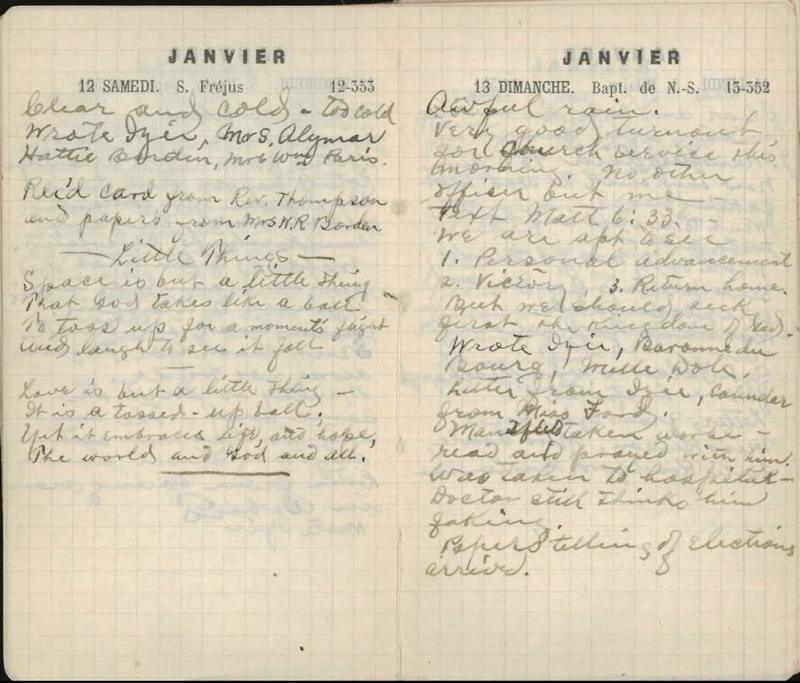 JANVIER
12 SAMEDI. S. Fréjus 12-353
Clear and cold - too cold
Wrote Izie, Mrs. Alymar
Hattie Borden, Mrs Wm Paris.
Rec'd card from Rev. Thompson
and papers from Mrs W.R Borden
— Little Things —
Space is but a little thing
That God takes like a ball
To toss up for a moments flight
And laugh to see it fall
Love is but a little thing —
It is a tossed-up ball;
Yet it embraces life, and hope,
The world and God and all.
JANVIER
13 DIMANCHE. Bapt. de N.-S. 13-352
Awful rain.
Very good turnout
for Church service this
morning. No other
officer but me —
Text Matt 6:33. —
We are apt to see
1. Personal advancement
2. Victory, 3. Return home.
But we should seek
first the Kingdom of God.
Wrote Izie, Baronne du
Bourg, Mlle Dole.
Letter from Izie, Calendar
from Miss Ford.
Man taken worse —
read and prayed with him.
Was taken to hospital —
Doctor still thinks him
faking.
Papers telling of Elections
arrived.